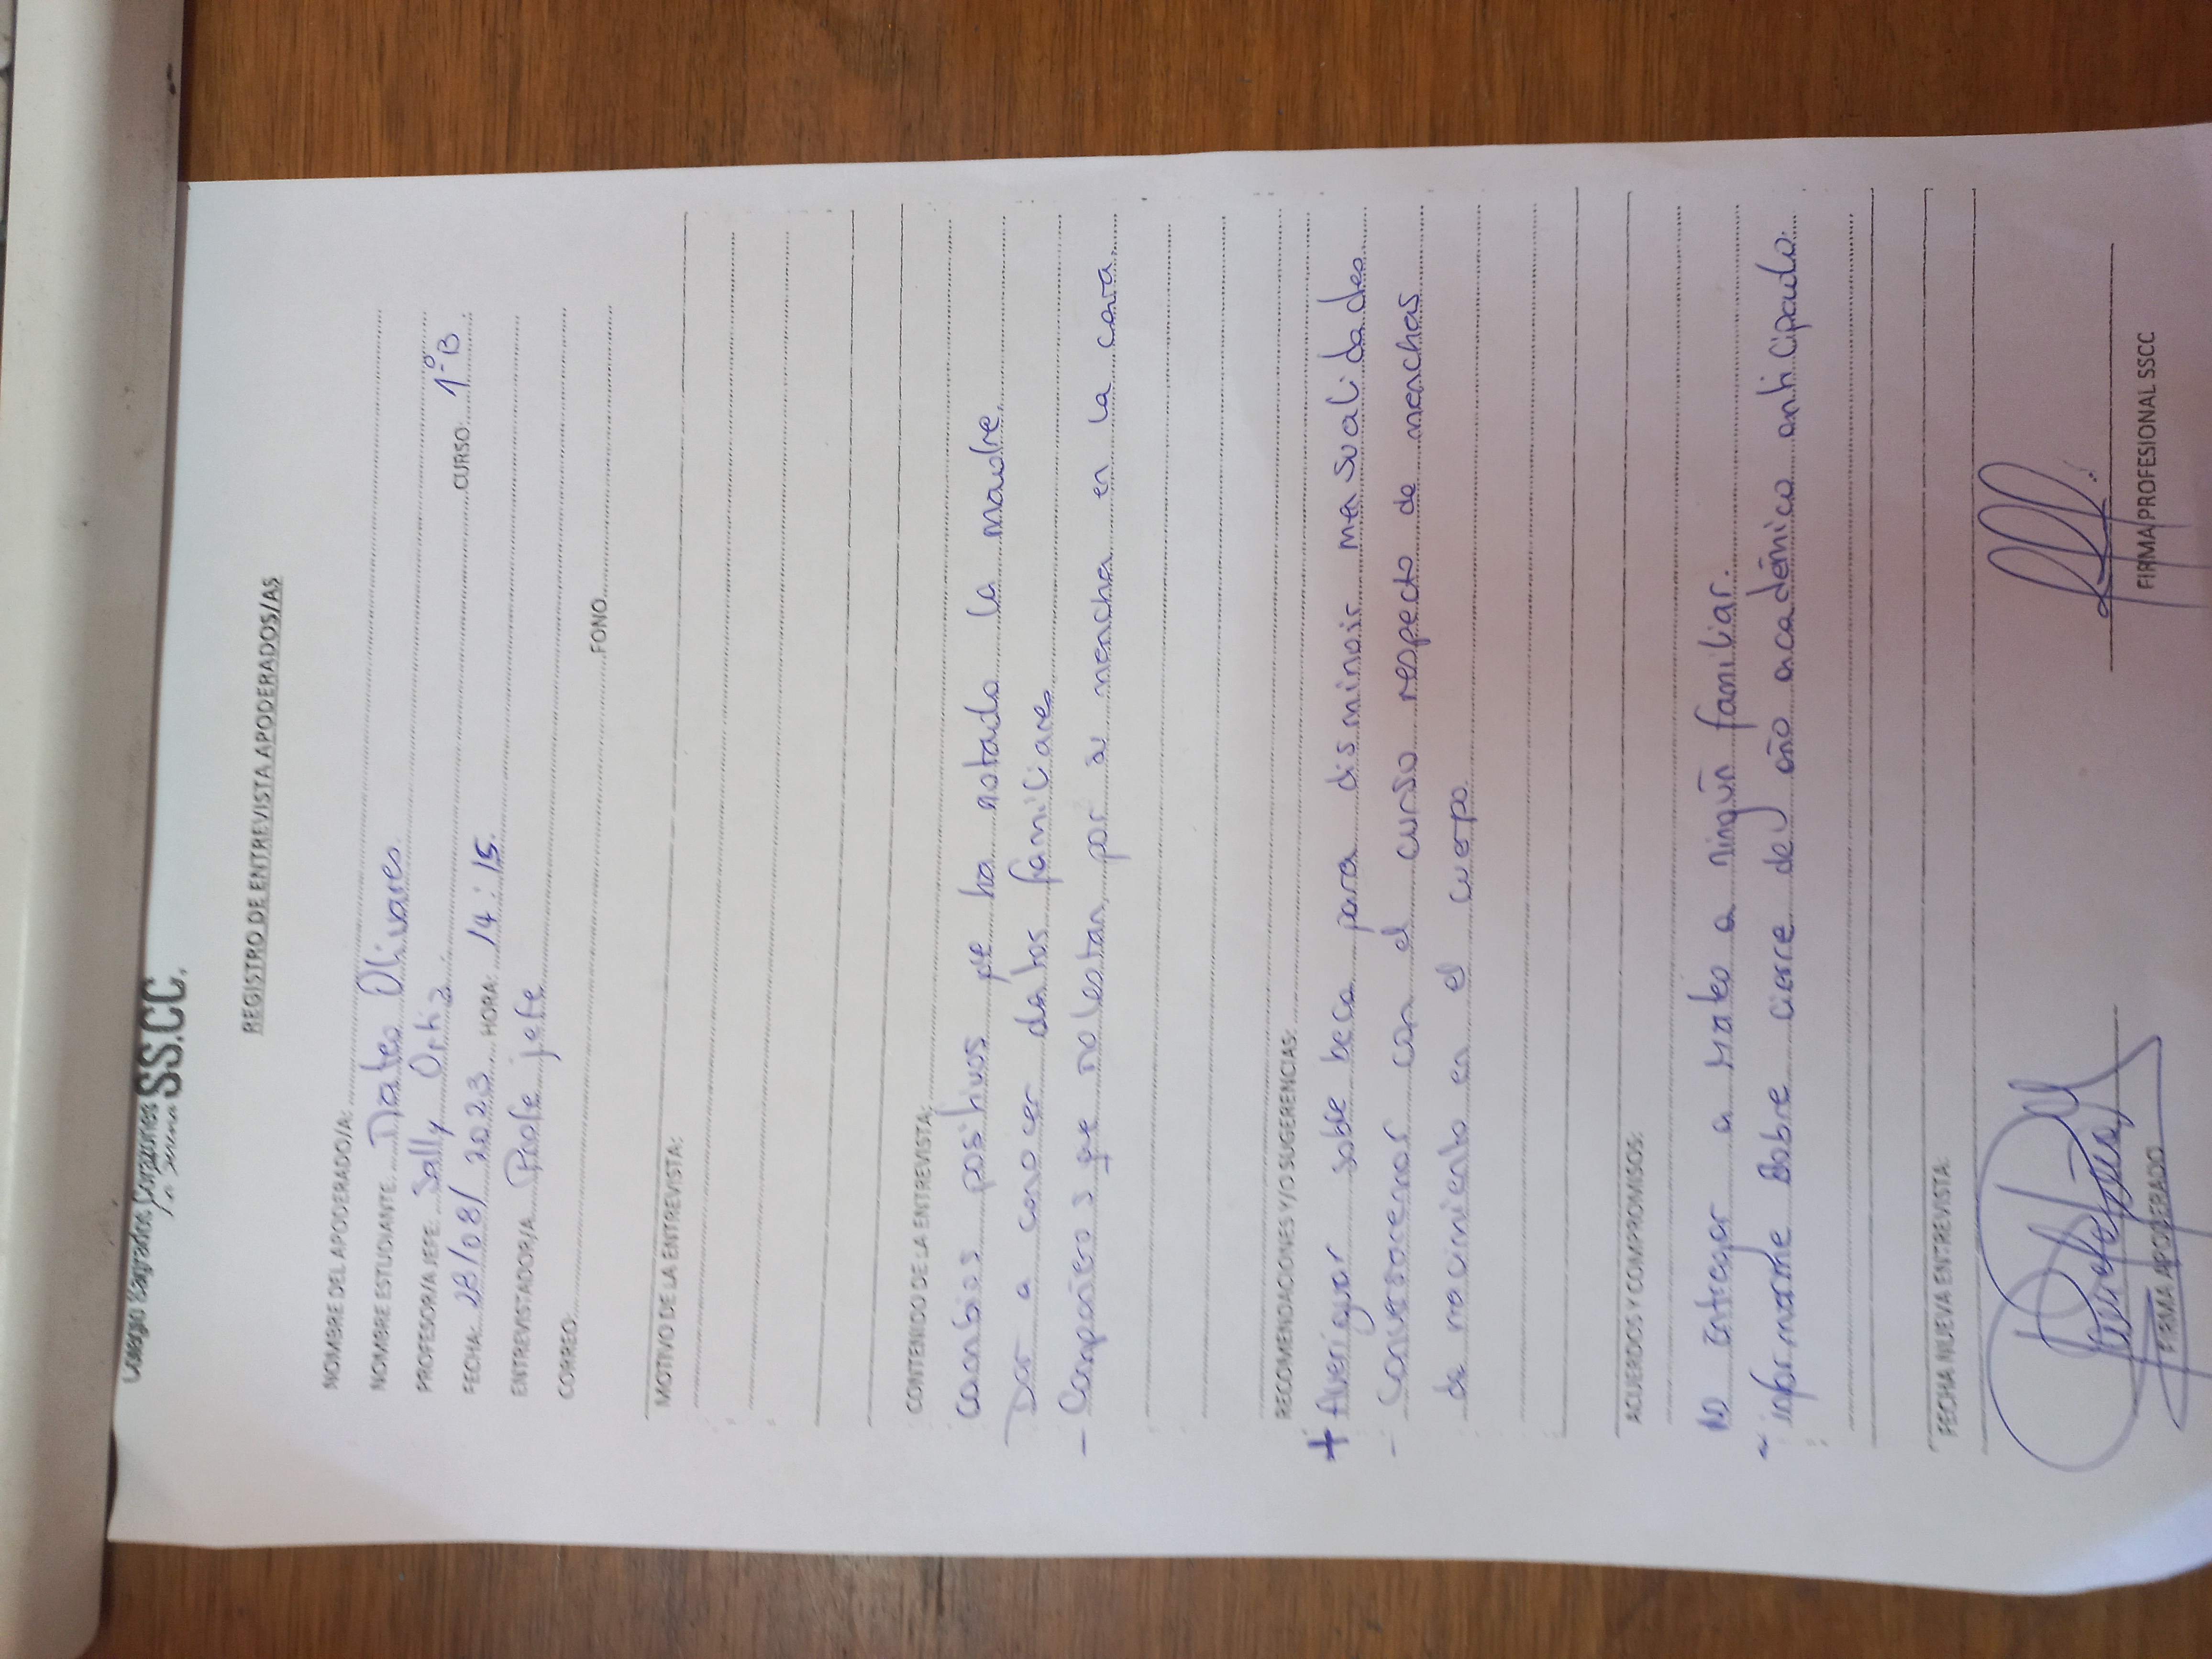 Colegio Sagrados Corazones SS.CC.
La Serena
REGISTRO DE ENTREVISTA APODERADOS/AS
NOMBRE DEL APODERADO/A:
NOMBRE ESTUDIANTE Mateo Olivares
PROFESOR/A JEFE Sally Ortiz. CURSO 1ºB
FECHA: 28/08/2023 HORA: 14:15.
ENTREVISTADOR/A Profe jefe
CORREO: FONO
MOTIVO DE LA ENTREVISTA:
CONTENIDO DE LA ENTREVISTA:
cambios positivos que ha notado la madre.
Dar a conocer datos familiares
- Compañeros que molestan por su mancha en la cara.
RECOMENDACIONES Y/O SUGERENCIAS:
+ Averiguar sobre beca para disminuir mensualidades
- Conversaremos con el curso respecto de manchas
de nacimiento en el cuerpo.
ACUERDOS Y COMPROMISOS:
No entregar a Mateo a ningún familiar.
~ informarme sobre cierre del año académico anticipado.
FECHA NUEVA ENTREVISTA:
FIRMA APODERADO
FIRMA PROFESIONAL SSCC